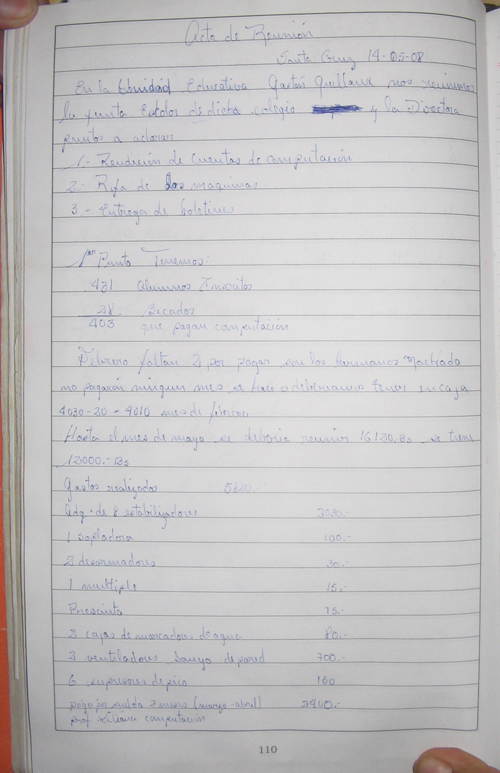 Acta de Reunión
Santa Cruz 14-05-08
En la Unidad Educativa Gastón Guillaux nos reunimos
la junta Escolar de dicho colegio y la Directora
puntos a aclarar
1.- Rendición de Cuentas de computación
2.- Rifa de las maquinas
3.- Entrega de boletines
1er Punto Tenemos:
431 Alumnos Inscritos
28 Becados
403 que pagan computación
Febrero faltan 2 por pagar son los hermanos Machado
no pagaron ningun mes se hace o deberiamos tener en caja
4030-20 = 4010 mes de febrero
Hasta el mes de mayo se deberia reunir 16120,Bs se tiene
12000.-Bs
Gastos realizados
Adq. de 8 estabilizadores
1 sopladora 100.-
2 desarmadores 30.-
1 multiple 15.-
Precinto 15.-
2 cajas de marcadores de agua 80.-
2 ventiladores Sanyo de pared 700.-
6 supresores de pico 160
pago por sueldo 2 meses (marzo-abril) 2400.-
prof. computación
110